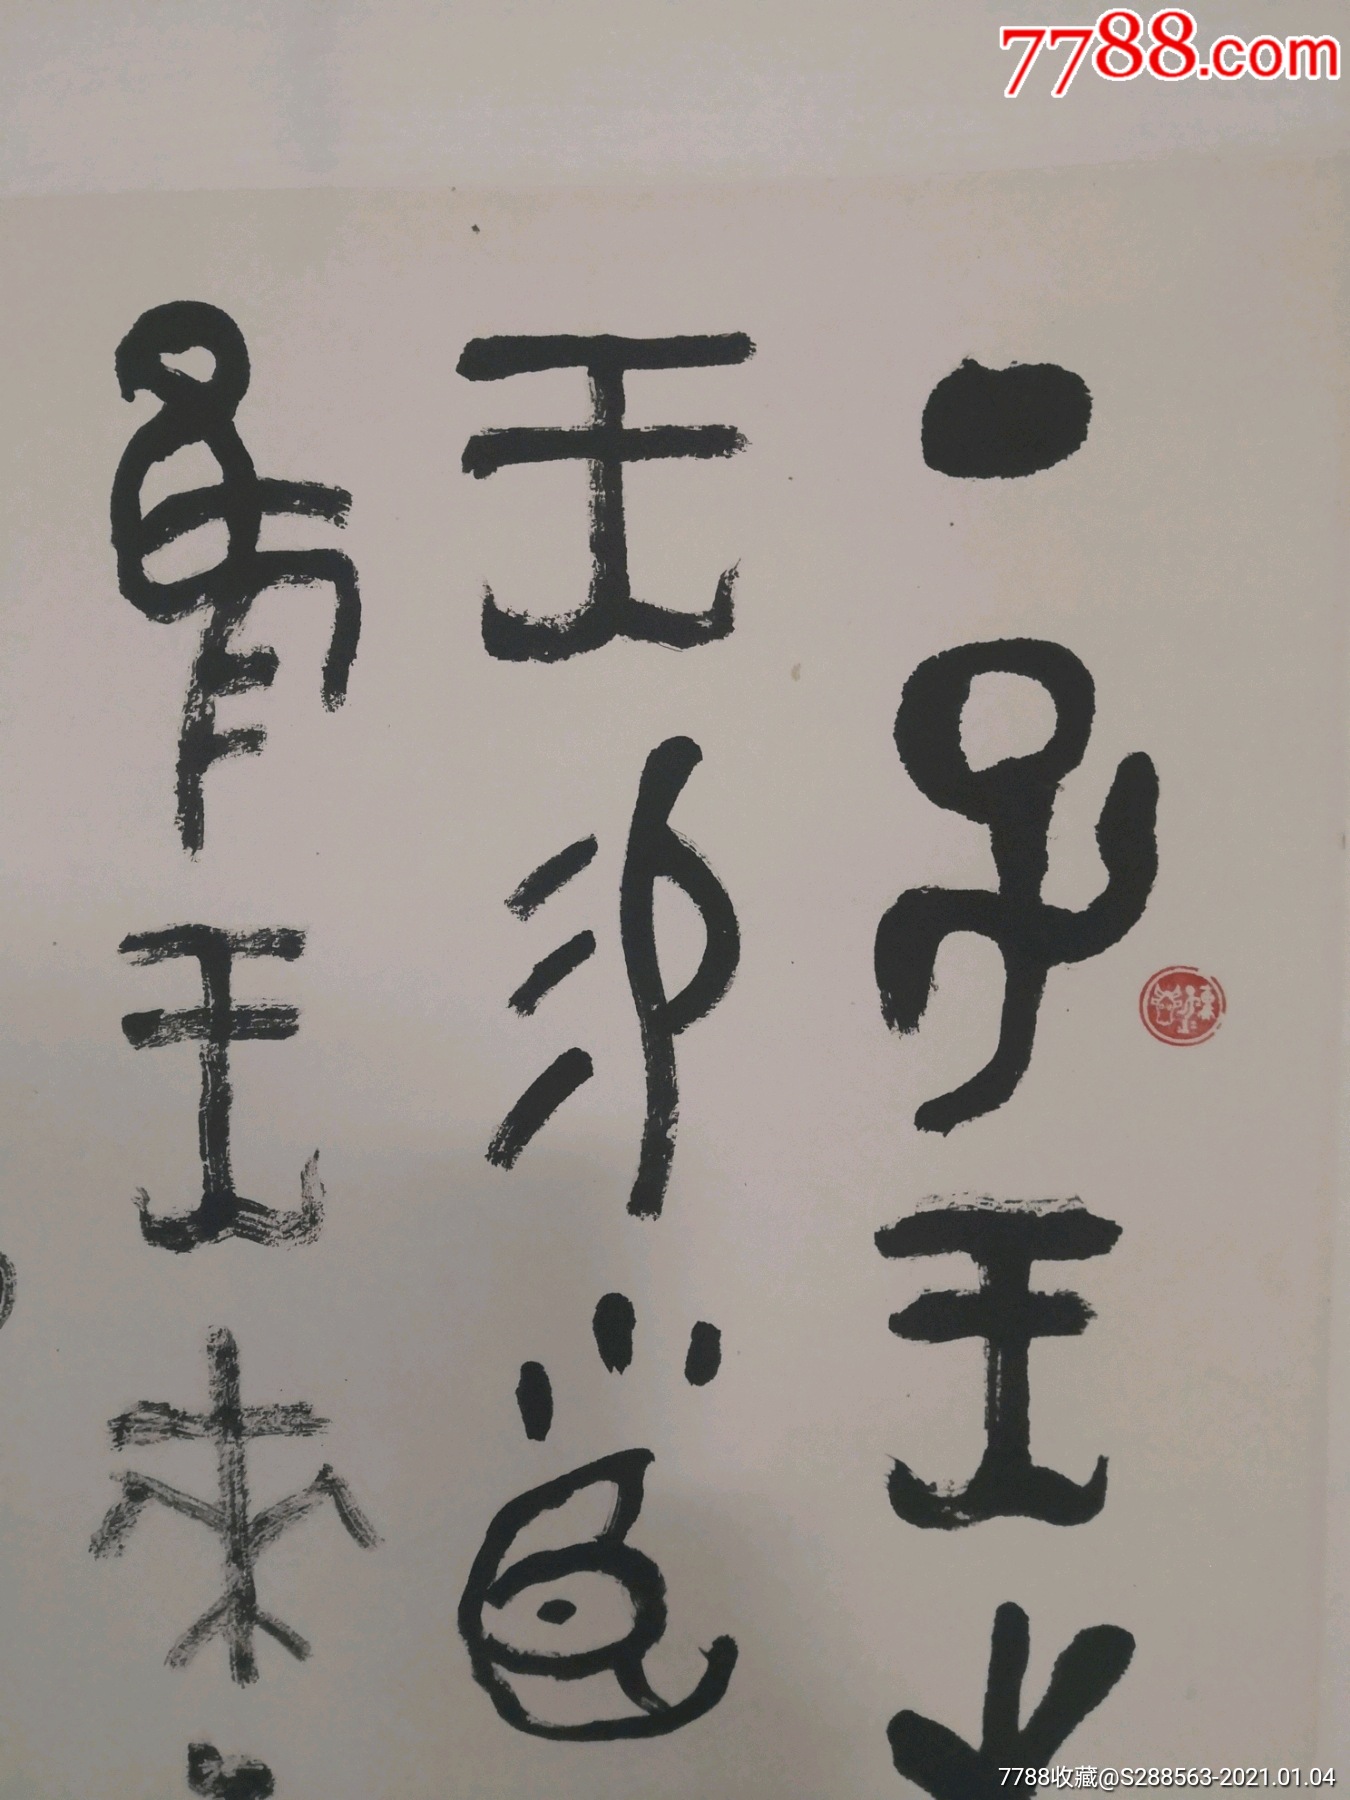 7788.com
丁巳王
王易小臣
隹王來
7788收藏@S288563-2021.01.04